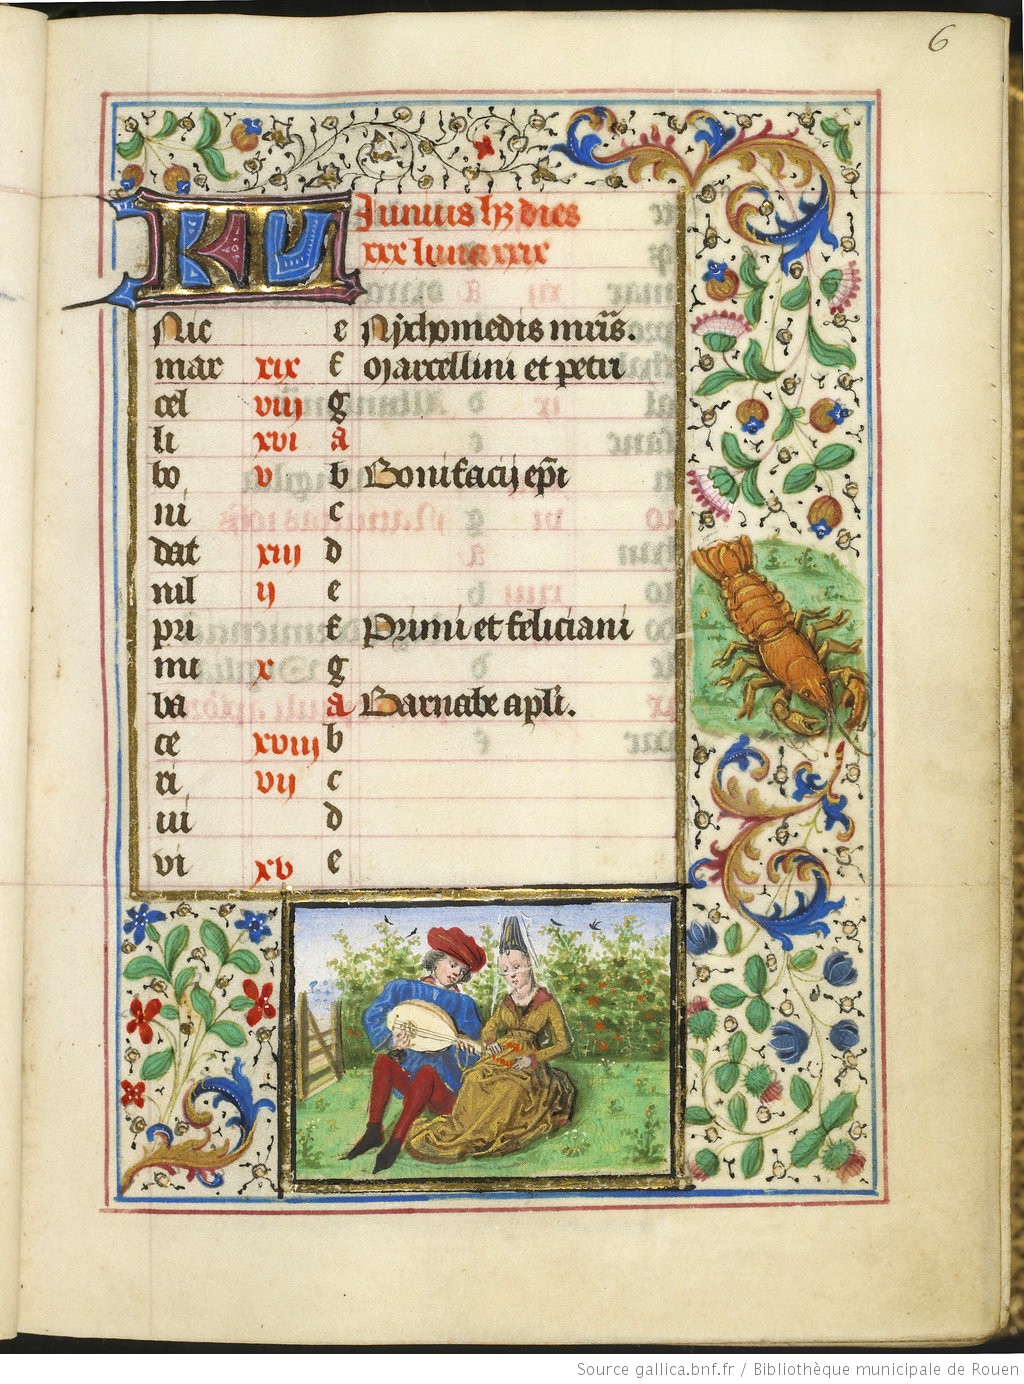 6
KL Junius hȝ dies
xxx luna xxix
Nic e Nychomedis muris.
mar xix f Marcellini et petri
cel viij g
li xvi a
bo v b Bonifacij epi
ni c
dat xiij d
nil ij e
pri f Primi et feliciani
mi x g
ba a Barnabe apli.
ce xviij b
ri vij c
iui d
vi xv e
Source gallica.bnf.fr / Bibliothèque municipale de Rouen